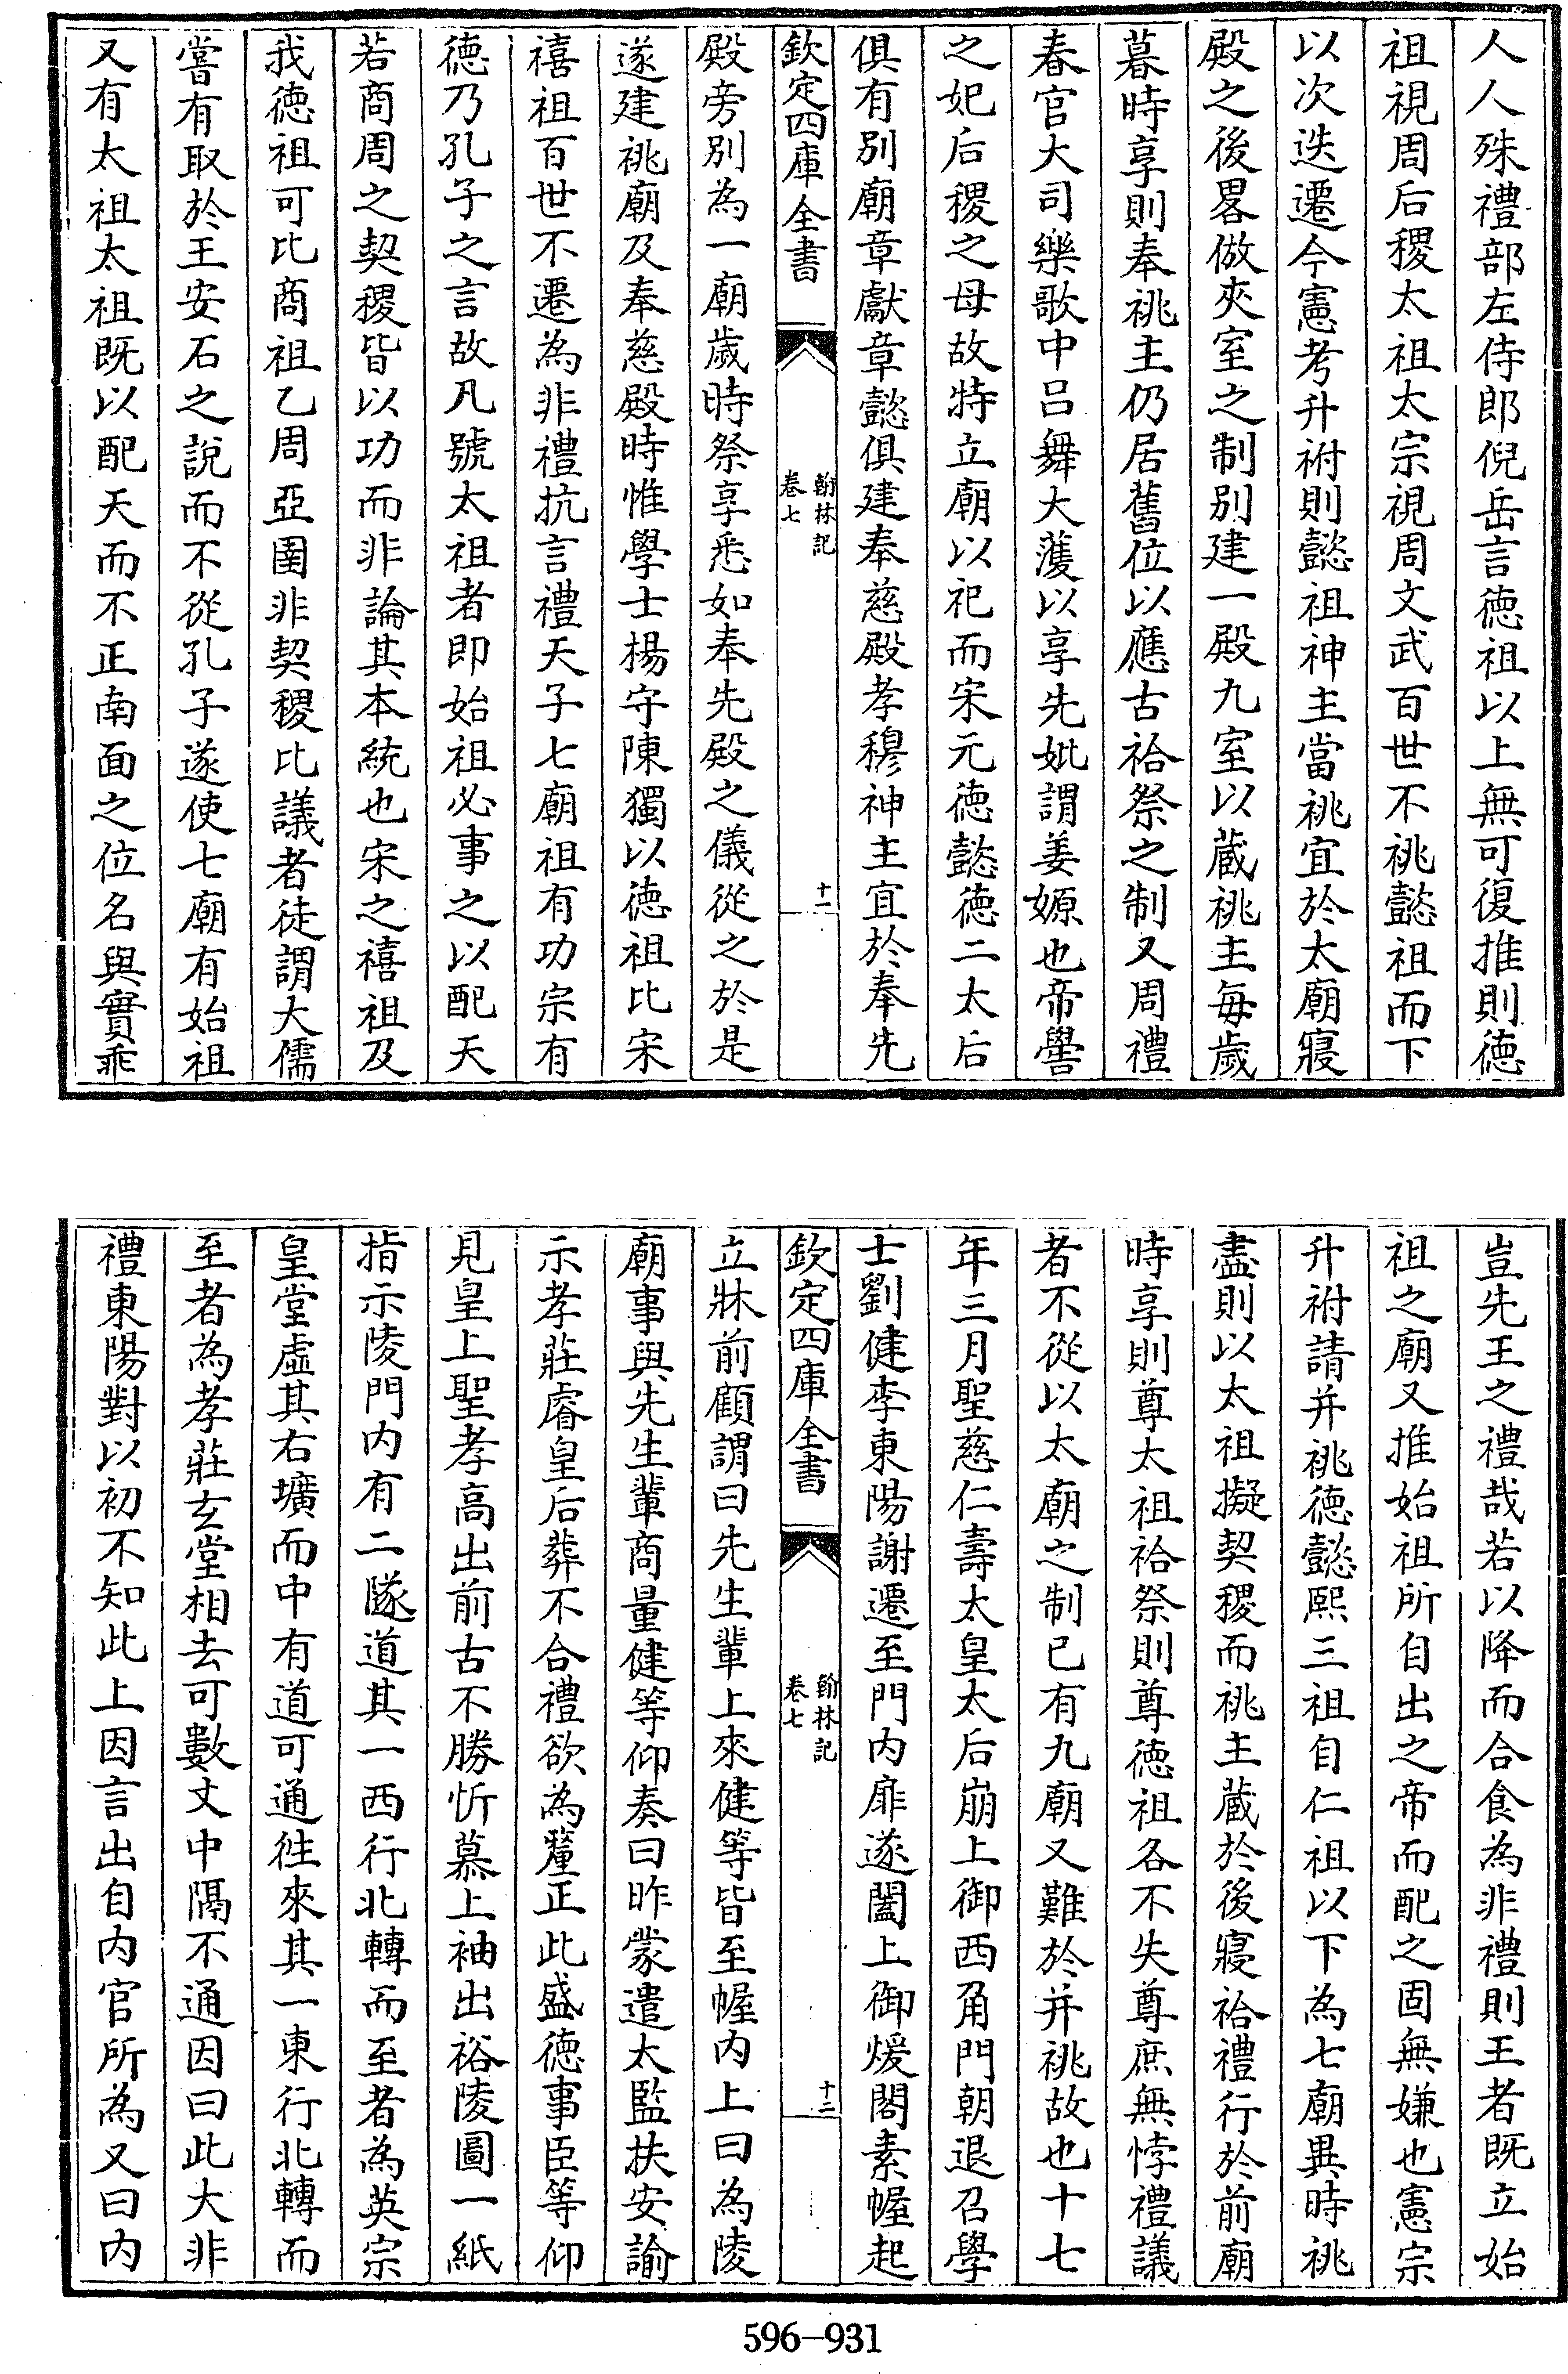 人人殊禮部左侍郎倪岳言徳祖以上無可復推則徳
祖視周后稷太祖太宗視周文武百世不祧懿祖而下
以次迭遷今憲考升祔則懿祖神主當祧宜於太廟寢
殿之後畧倣夾室之制别建一殿九室以蔵祧主每歲
暮時享則奉祧主仍居舊位以應古祫祭之制又周禮
春官大司樂歌中呂舞大濩以享先妣謂姜嫄也帝嚳
之妃后稷之母故特立廟以祀而宋元徳懿徳二太后
俱有别廟章獻章懿俱建奉慈殿孝穆神主宜於奉先
欽定四庫全書
翰林記
卷七
十一
殿旁别為一廟歲時祭享悉如奉先殿之儀從之於是
遂建祧廟及奉慈殿時惟學士楊守陳獨以徳祖比宋
禧祖百世不遷為非禮抗言禮天子七廟祖有功宗有
徳乃孔子之言故凡號太祖者即始祖必事之以配天
若商周之契稷皆以功而非論其本統也宋之禧祖及
我徳祖可比商祖乙周亞圉非契稷比議者徒謂大儒
嘗有取於王安石之說而不從孔子遂使七廟有始祖
又有太祖太祖既以配天而不正南面之位名與實乖
豈先王之禮哉若以降而合食為非禮則王者既立始
祖之廟又推始祖所自出之帝而配之固無嫌也憲宗
升祔請并祧徳懿熙三祖自仁祖以下為七廟異時祧
盡則以太祖擬契稷而祧主蔵於後寢祫禮行於前廟
時享則尊太祖祫祭則尊徳祖各不失尊庶無悖禮議
者不從以太廟之制已有九廟又難於并祧故也十七
年三月聖慈仁壽太皇太后崩上御西角門朝退召學
士劉健李東陽謝遷至門内扉遂闔上御煖閣素幄起
欽定四庫全書
翰林記
卷七
十二
立牀前顧謂曰先生輩上來健等皆至幄内上曰為陵
廟事與先生輩商量健等仰奏曰昨蒙遣太監扶安諭
示孝莊睿皇后葬不合禮欲為釐正此盛徳事臣等仰
見皇上聖孝高出前古不勝忻慕上袖出裕陵圖一紙
指示陵門内有二隧道其一西行北轉而至者為英宗
皇堂虛其右壙而中有道可通徃來其一東行北轉而
至者為孝莊玄堂相去可數丈中隔不通因曰此大非
禮東陽對以初不知此上因言出自内官所為又曰内
596-931